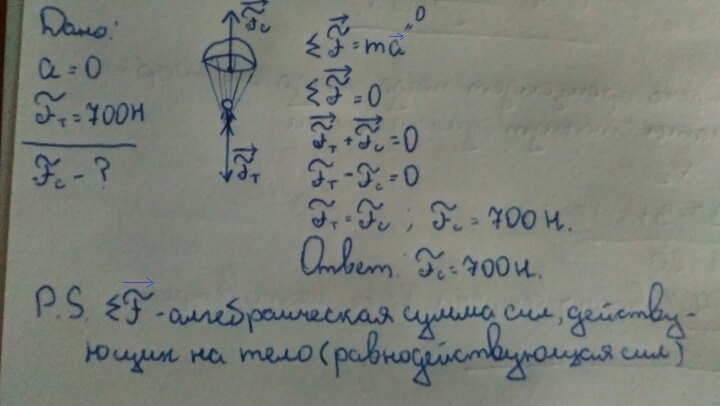 Дано:
a = 0
Fт = 700 Н
Fс - ?
F⃗с
F⃗т
ΣF⃗ = ma⃗ "0
ΣF⃗ = 0
F⃗т + F⃗с = 0
Fт - Fс = 0
Fт = Fс ; Fс = 700 Н.
Ответ: Fс = 700 Н.
P.S. ΣF⃗ - алгебраическая сумма сил, действу-
ющих на тело (равнодействующая сил)